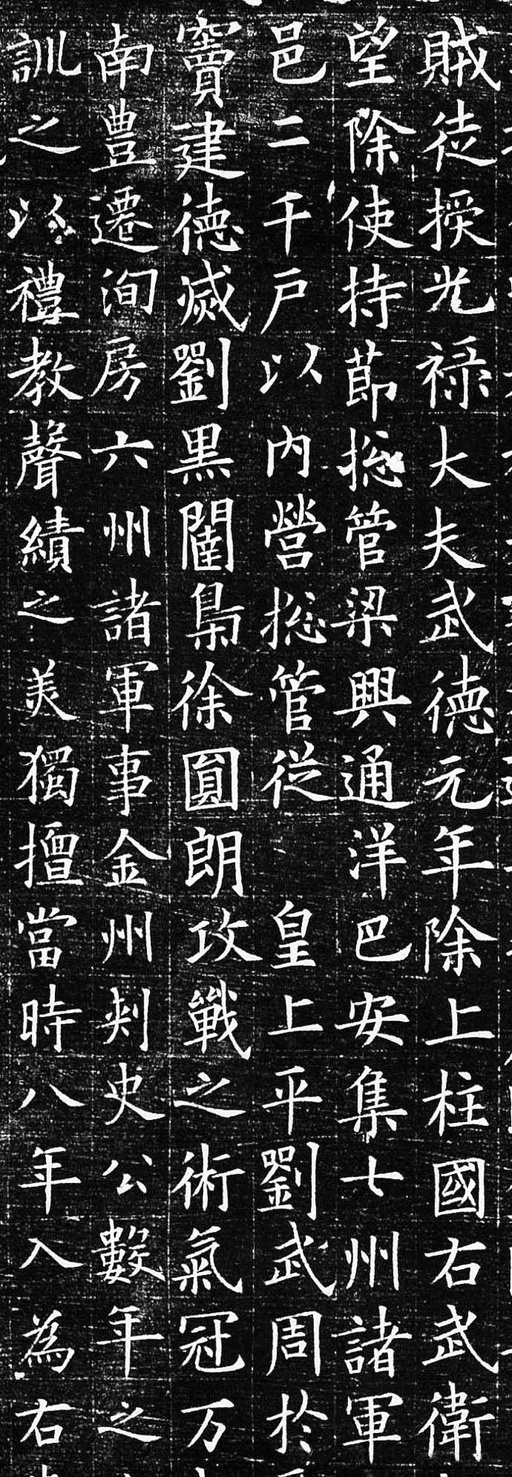 賊徒授光禄大夫武德元年除上柱國右武衛
望除使持莭捴管梁興通洋巴安集七州諸軍
邑二千戶以內營捴管從皇上平劉武周於
竇建德滅劉黒闥梟徐圎朗攻戰之術氣冠万
南豊遷洵房六州諸軍事金州刾史公數年之
訓之以禮教聲績之美獨擅當時八年入為右